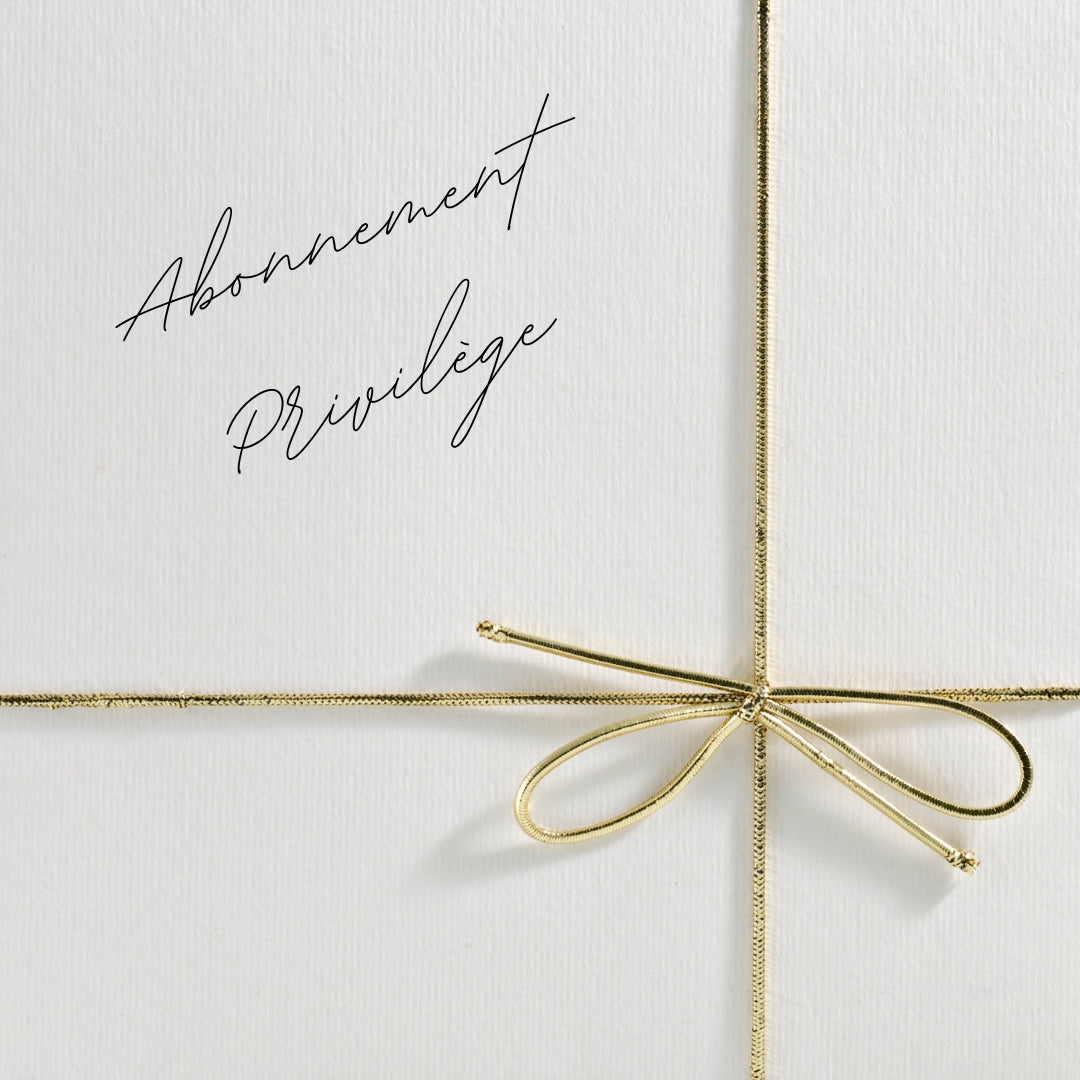 Abonnement
Privilège